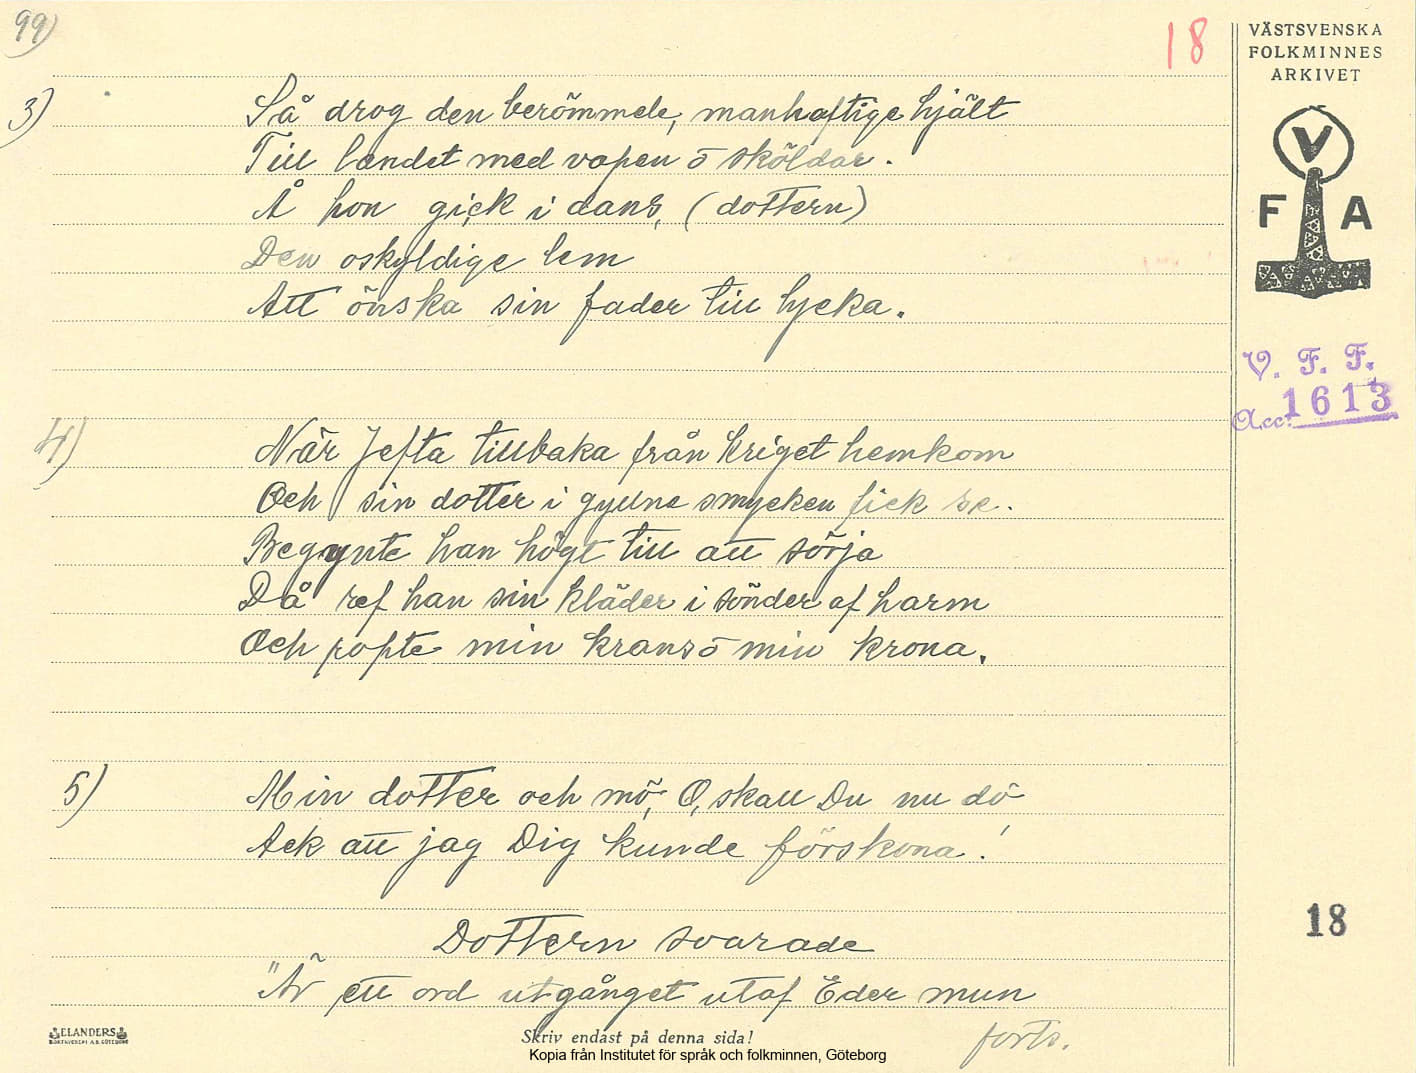 99)
18
VÄSTSVENSKA
FOLKMINNES
ARKIVET
V
F A
V. F. F.
Acc: 1613
3) Så drog den berömmele, manhaftige hjält
Till landet med vapen ō sköldar.
Å hon gick i dans, (dottern)
Den oskyldige lem
Att önska sin fader till lycka.
4) När Jefta tillbaka från kriget hemkom
Och sin dotter i gyllne smycken fick se.
Begynte han högt till att sörja
Då ref han sin kläder i sönder af harm
Och ropte min krans ō min krona.
5) Min dotter och mö, O, skall Du nu dö
Ack att jag Dig kunde förskona!
Dottern svarade
"Är ett ord utgånget utaf Eder mun
forts.
18
ELANDERS
BOKTRYCKERI A.B. GÖTEBORG
Skriv endast på denna sida!
Kopia från Institutet för språk och folkminnen, Göteborg